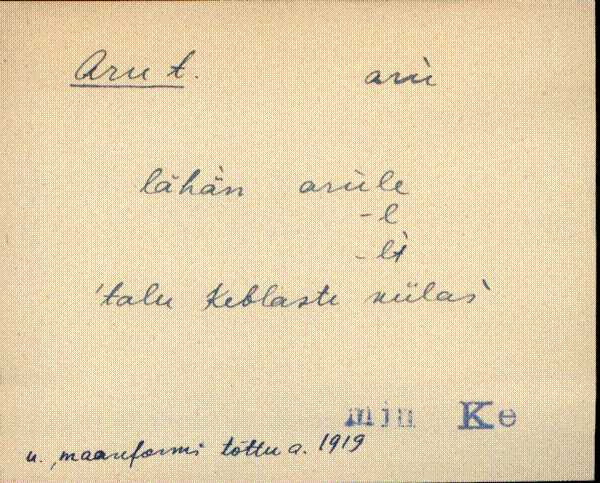 Aru t. aru
lähän arule
-l
-lt
'talu Keblaste külas'
mjn Ke
u. maareformi tõttu a. 1919